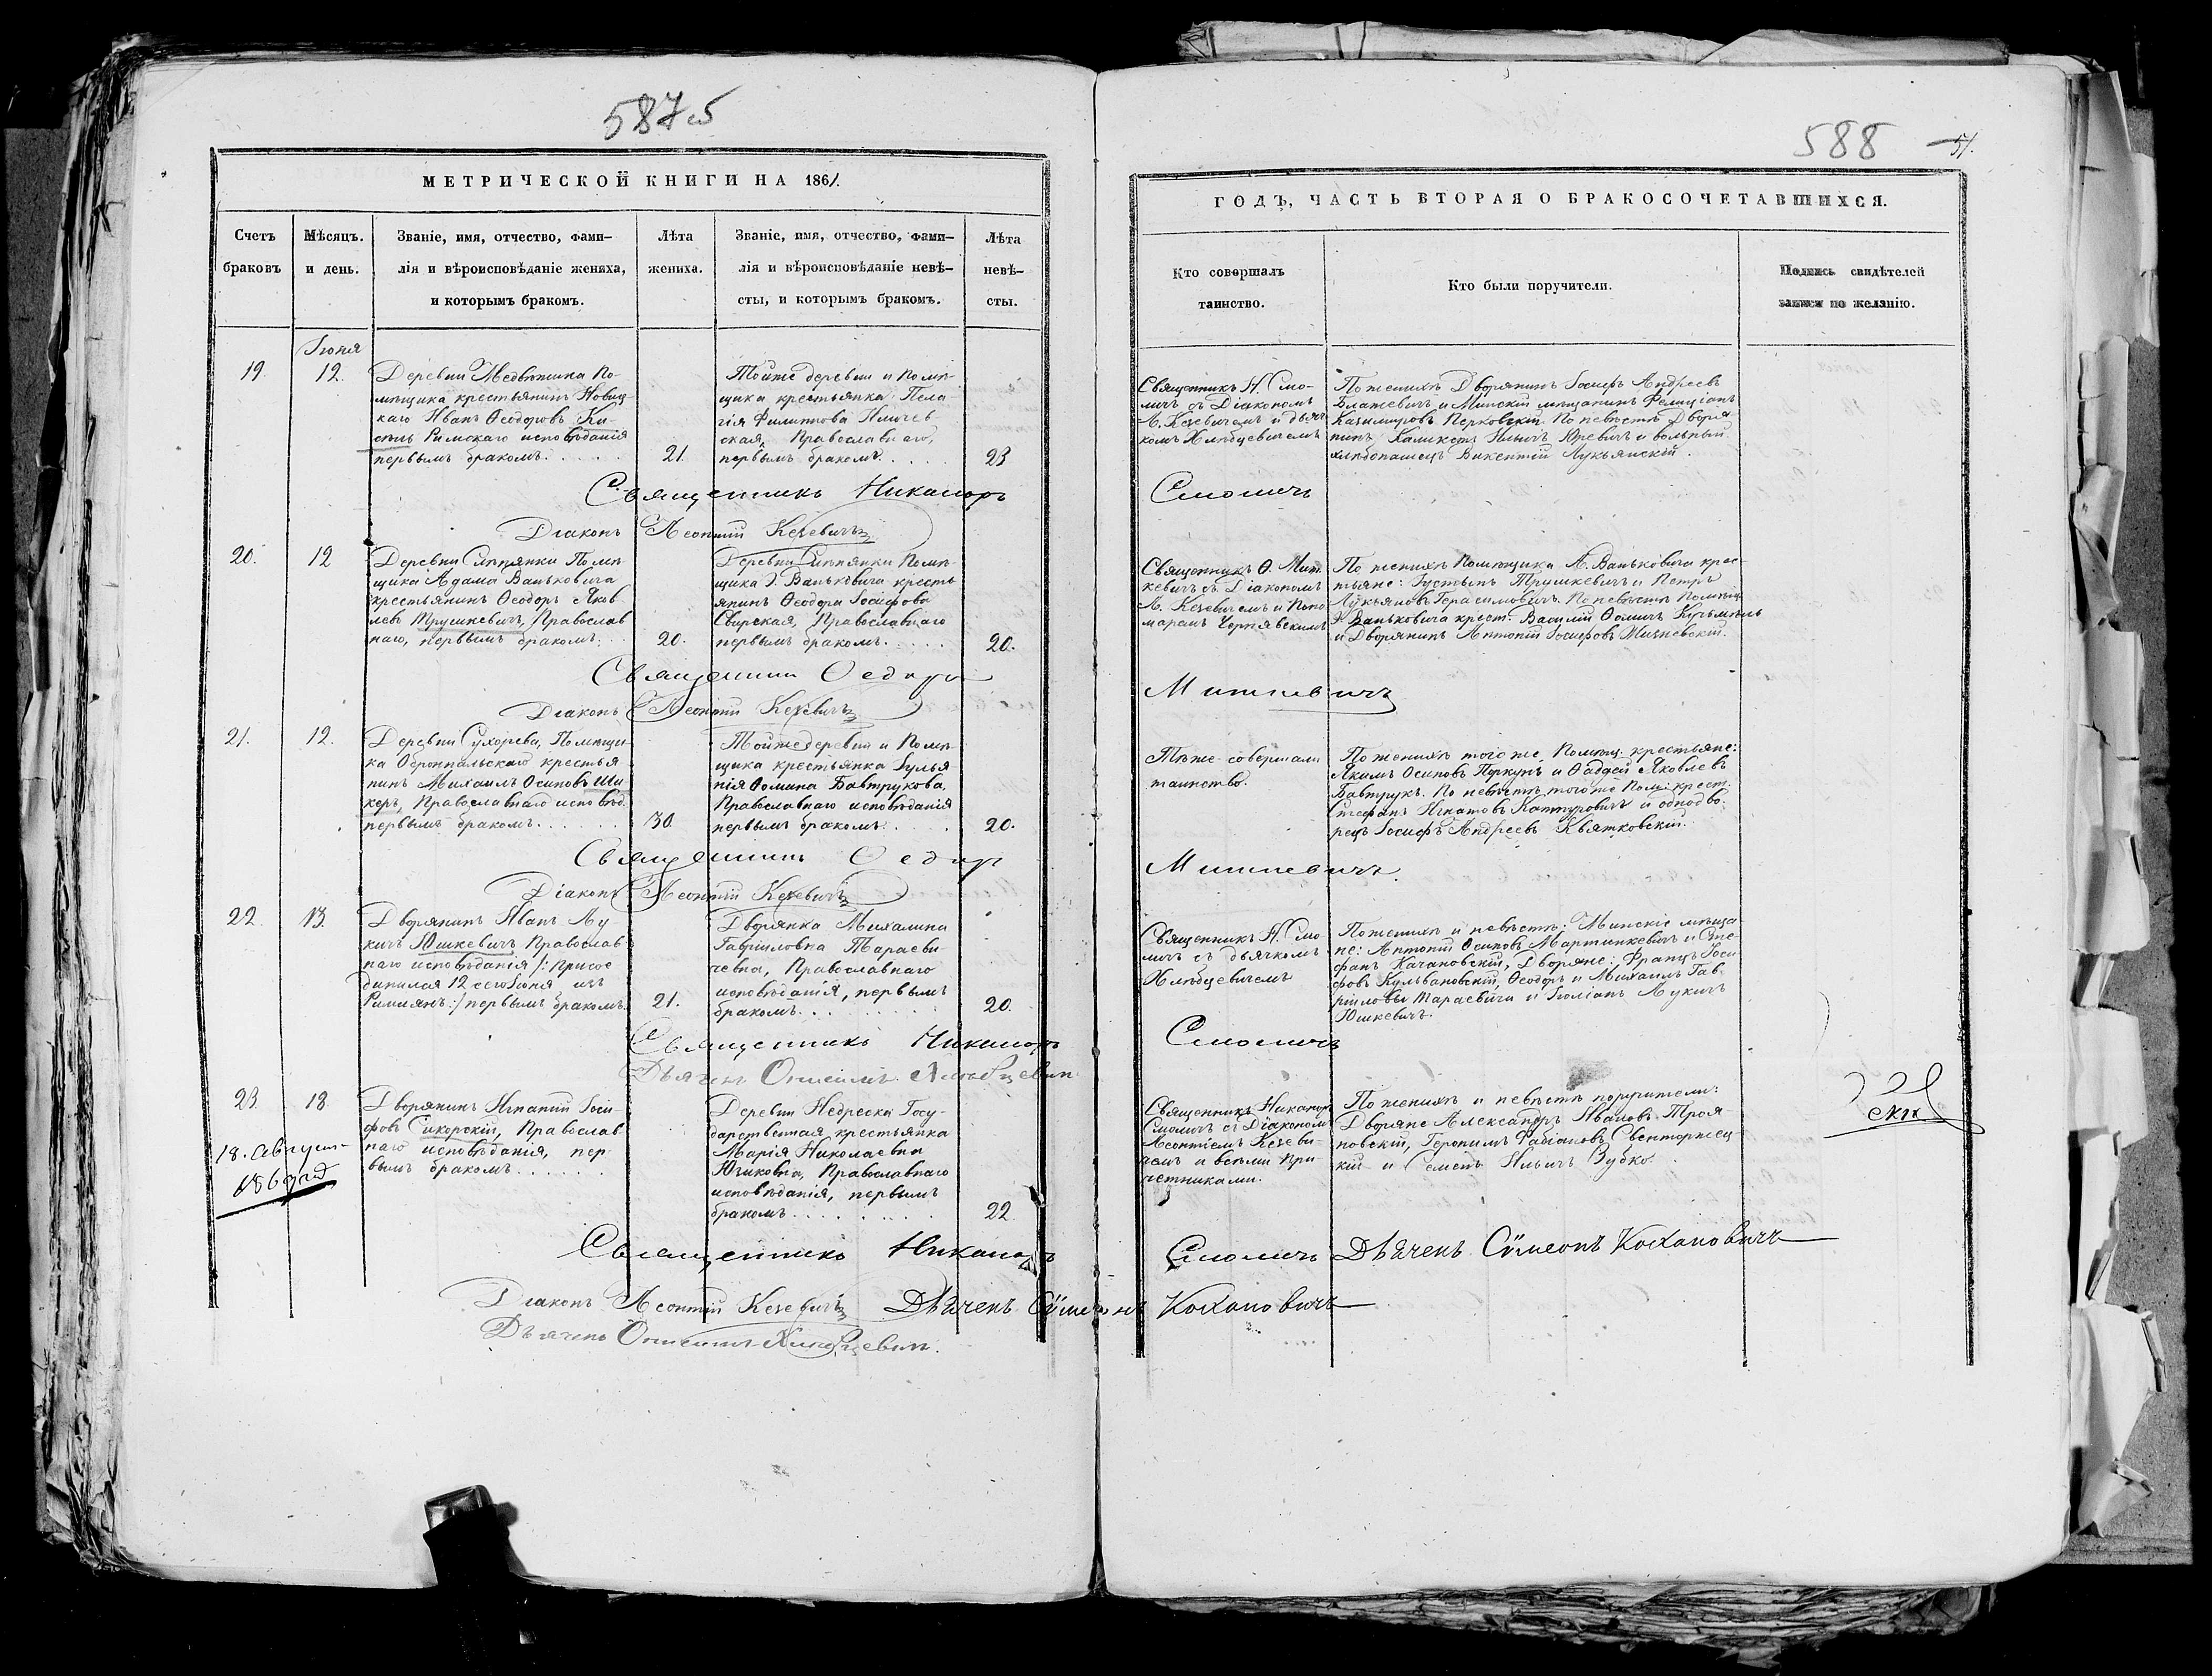 587 об
МЕТРИЧЕСКОЙ КНИГИ НА 1861.
Счетъ
браковъ
Мѣсяцъ.
и день.
Званіе, имя, отчество, фами-
лія и вѣроисповѣданіе жениха,
и которымъ бракомъ.
Лѣта
жениха.
Званіе, имя, отчество, фами-
лія и вѣроисповѣданіе невѣ-
сты, и которымъ бракомъ.
Лѣта
невѣ-
сты.
Іюня
19.
12.
Деревни Медвѣжина По-
мѣщика крестьянинъ Новиц-
каго Иванъ Ѳеодоровъ Ки-
сель Римскаго исповѣданія
первымъ бракомъ.....
21.
Тойже деревни и Помѣ-
щика крестьянка Пела-
гія Филиппова
ская, Православнаго,
первымъ бракомъ....
23
Священникъ Никаноръ
Діаконъ Леонтій Кезевичъ
20.
12
Деревни Слѣпянки Помѣ-
щика Адама Ваньковича
крестьянинъ Ѳеодоръ Яков
левъ Трушкевичъ, Православ
наго, первымъ бракомъ...
20.
Деревни Слѣпянки Помѣ-
щика Э. Ваньковича кресть
янинъ Ѳеодора Іосифова
Свирская, Православнаго
первымъ бракомъ.....
20.
Священникъ Ѳедоръ
Діаконъ Леонтій Кезевичъ
21.
12.
Деревни Сухорева, Помѣщи-
ка Оброппальскаго крестья
нинъ Михаилъ Осиповъ Ши
керъ, Православнаго исповѣд.
первымъ бракомъ......
30
Тойже деревни и Помѣ-
щика крестьянка Іулья
нія Ѳомина Бавтрукова,
Православнаго исповѣданія
первымъ бракомъ...
20.
Священникъ Ѳедоръ
Діаконъ Леонтій Кезевичъ
22
13.
Дворянинъ Иванъ Лу
кичъ Юшкевичъ Православ
наго исповѣданія /: Присое
динился 12 сего Іюня изъ
Римлянъ:/ первымъ бракомъ.
21.
Дворянка Михалина
Гавріиловна Тараеви
чевна, Православнаго
исповѣданія, первымъ
бракомъ.........
20.
Священникъ Никаноръ
Дьячекъ Онисимъ Хлѣбцевичъ
23.
18
18. Август
Дворянинъ Игнатій Іоси-
фовъ Сикорскій, Православ
наго исповѣданія, пер
вымъ бракомъ......
Деревни Недрески Госу-
дарственная крестьянка
Марія Николаевна
Православнаго
исповѣданія, первымъ
бракомъ........
22
Священникъ Никаноръ
Діаконъ Леонтій Кезевичъ Дьячекъ Сѵмеонъ Кохановичъ
Дьячекъ Онисимъ Хлѣбцевичъ.
588 51.
ГОДЪ, ЧАСТЬ ВТОРАЯ О БРАКОСОЧЕТАВШИХСЯ.
Кто совершалъ
таинство.
Кто были поручители.
Подпись свидѣтелей
записи по желанію.
Священникъ Н. Смо-
личъ съ Діакономъ
Л. Кезевичемъ и дьяч
комъ Хлѣбцевичемъ
По женихѣ Дворянинъ Іосифъ Андреевъ
Блажевичъ и Минскій мѣщанинъ Фелиціанъ
Казимировъ Перковскій. По невѣстѣ Дворя
нинъ Каликстъ Ильичъ Юревичъ и вольный
хлѣбопашецъ Викентій Лукьянскій.
Смоличъ
Священникъ Ѳ. Мит-
кевичъ съ Діакономъ
Л. Кезевичемъ и Поно
маремъ Чернявскимъ
По женихѣ Помѣщика А. Ваньковича крес-
тьяне: Густынъ Трушкевичъ и Петръ
Лукьяновъ Герасимовичъ. По невѣстѣ Помѣщ.
Э Ваньковича крест. Василій Ѳомичъ
и Дворянинъ Антоній Іосифовъ
Миткевичъ
Тѣже совершали
таинство.
По женихѣ тогоже Помѣщ. крестьяне:
Якимъ Осиповъ Перкунъ и Ѳаддей Яковлевъ
Бавтрукъ. По невѣстѣ тогоже Пом: крест.
Стефанъ Игнатовъ и однодво-
рецъ Іосифъ Андреевъ Квятковскій.
Миткевичъ.
Священникъ Н. Смо
личъ съ дьячкомъ
Хлѣбцевичемъ
По женихѣ и невѣстѣ: Минскіе мѣща-
не: Антоній Осиповъ Мартинкевичъ и Сте-
фанъ Качановскій, Дворяне: Францъ Іоси
фовъ Кульвановскій, Ѳеодоръ и Михаилъ Гав-
ріиловы Тараевичи и Іюліанъ Лукичъ
Юшкевичъ.
Смоличъ
Священникъ Никаноръ
Смоличъ съ Діакономъ
Леонтіемъ Кезеви-
чемъ и всѣми При-
четниками.
По женихѣ и невѣстѣ поручители:
Дворяне Александръ Ивановъ Троя-
новскій, Героnимъ Фабіановъ Свенторжец
кій и Семенъ Ильичъ Зубко.
Смоличъ Дьячекъ Сѵмеонъ Кохановичъ